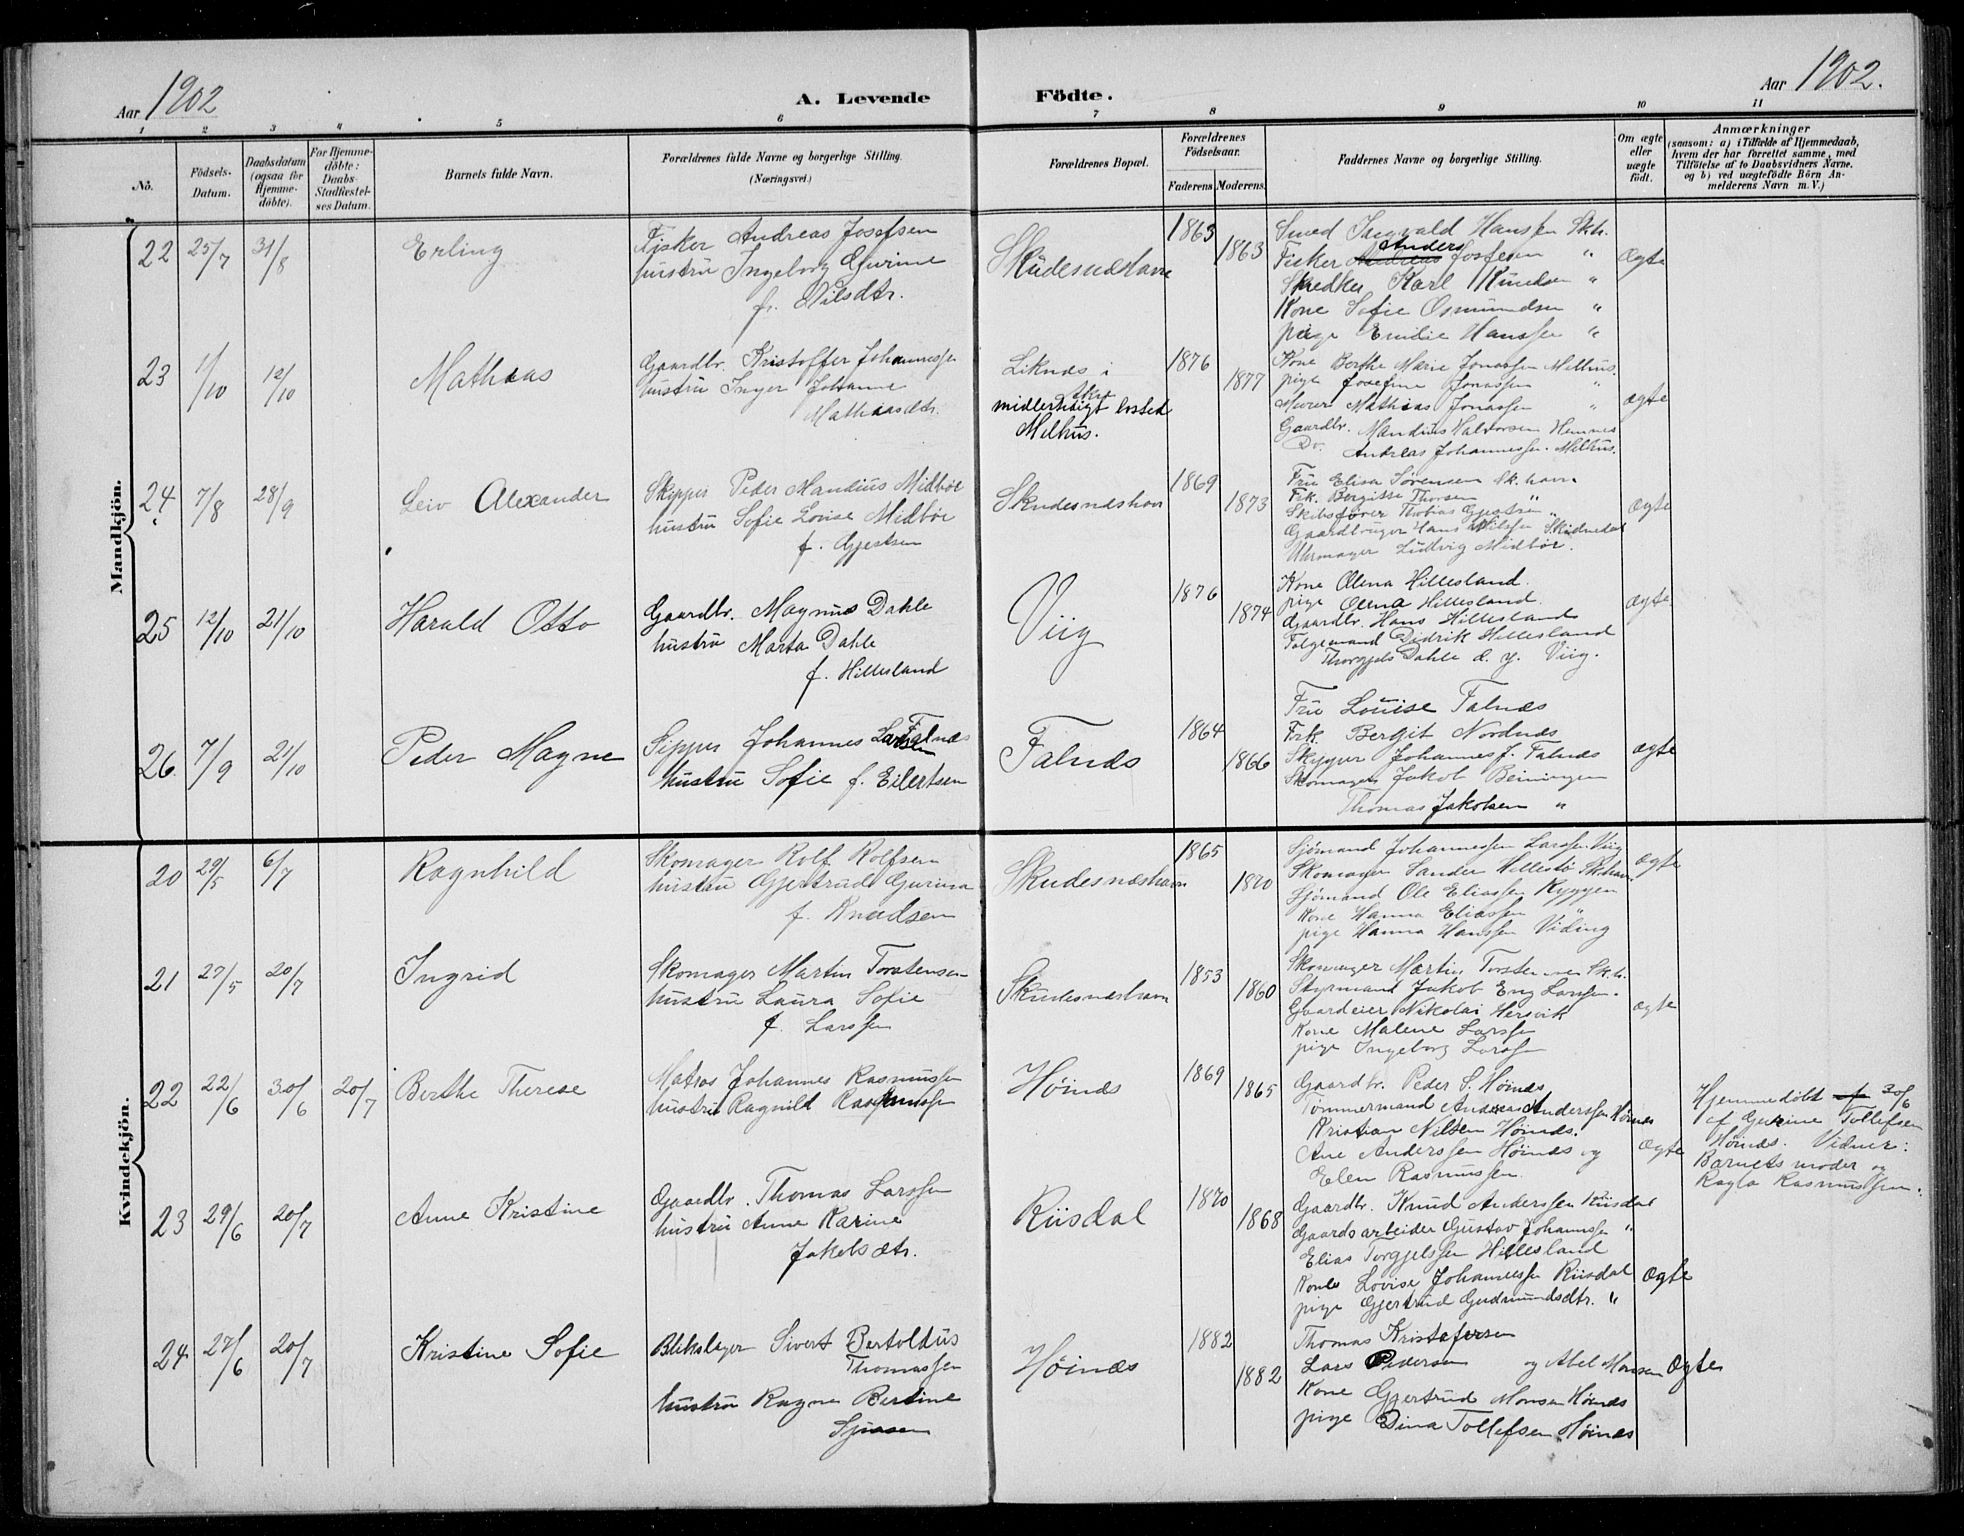 Aar 1902
A. Levende
Födte.
Aar 1902.
1 2 3 4 5 6 7 8 9 10 11
No.
Födsels-Datum.
Daabsdatum (ogsaa for Hjemme-döbte).
For Hjemme-döbte: Daabs Stadfæstel-ses Datum.
Barnets fulde Navn.
Forældrenes fulde Navne og borgerlige Stilling.
(Næringsvei.)
Forældrenes Bopæl.
Forældrenes Födselsaar.
Faderens Moderens.
Faddernes Navne og borgerlige Stilling.
Om ægte eller uægte födt.
Anmærkninger
(saasom: a) i Tilfælde af Hjemmedaab, hvem der har forrettet samme, med Tilföielse af to Daabsvidners Navne. og b) ved uægtefödte Börn An-melderens Navn m. V.)
Mandkjön.
22 25/7 31/8 Erling
Fisker Andreas Josefsen
hustru Ingeborg Gurine
f. Nilsdtr.
Skudesnæshavn
1863 1863
Smed Ingvald Hanssen Skh.
Fisker Anders Josefsen "
Karl Knudsen "
Kone Sofie Osmundsen "
pige Emilie Hanssen "
Ægte
23 11/10 12/10 Mathias
Gaardbr. Kristoffer Johannessen
hustru Inger Johanne
Mathiasdtr.
Liknæs i
midlertidigt bosted
Melhus.
1876 1877
Kone Berthe Marie Jonassen Melhus.
pige Josefine Jonassen "
Murer Mathias Jonassen "
Gaardbr. Mandius Halvorsen Hemnes
Do. Andreas Johannessen Melhus.
ægte
24 7/8 28/9 Leiv Alexander
Skipper Peder Mandius Midbøe
hustru Sofie Lovise Midbøe
f. Gjestsen
Skudesnæshavn
1869 1873
Fru Elisa Sørensen Sk.havn
Frk. Bergitte Thorsen "
Skibsfører Thobias Gjestsen "
Gaardbruger Hans Nilsen
Uhrmager Ludvig Midbøe.
Ægte
25 12/10 21/10 Harald Otto
Gaardbr. Magnus Dahle
hustru Marta Dahle
f. Hillesland
Viig
1876 1874
Kone Olena Hillesland.
pige Olena Hillesland.
Gaardbr. Hans Hillesland
Følgemand Didrik Hillesland
Thorgjels Dahle d. y. Viig.
ægte
26 7/9 21/10 Peder Magne
Sipper Johannes Falnæs
hustru Sofie f. Eilertsen
Falnæs
1864 1866
Fru Louise Falnæs
Frk Bergit Nordnæs
Skipper Johannes J. Falnæs
Skomager Jakob Beiningen
Thomas Jakobsen "
ægte
Kvindekjön.
20 29/5 6/7 Ragnhild
Skomager Rolf Rolfsen
hustru Gjertrude Gurina
f. Knudsen
Skudesnæshavn
1865 1870
Sjømand Johannessen Larssen Viig
Skomager Sander Hillestø Skhavn
Sjømand Ole Eliassen Ryggen
Kone Hanna Eliassen "
pige Hanna Hanssen Viding
ægte
21 27/5 20/7 Ingrid
Skomager Martin Torstensen
hustru Laura Sofie
f. Larssen
Skudesnæshavn
1853 1860
Skomager Martin Torstensen Skh.
Styrmand Jakob Eng Larssen.
Gaardeier Nikolai Hersvik
Kone Malene Larssen
pige Ingeborg Larssen
ægte
22 22/6 30/6 20/7 Berthe Therese
Matros Johannes Rasmussen
hustru Ragnild Rasmussen
Høinæs
1869 1865
Gaardbr. Peder S. Høinæs
Tømmermand Andreas Anderssen Høinæs
Kristian Nilsen Høinæs.
Ane Anderssen Høinæs og
Elen Rasmussen.
Ægte
Hjemmedøbt 30/6
af Gurine Tollefsen
Høinæs. Vidner:
Barnets moder og
Rasmussen.
23 29/6 20/7 Anne Kristine
Gaardbr. Thomas Larssen
hustru Anne Karine
Jakobsdtr.
Riisdal
1870 1868
Gaardbr. Knud Anderssen Riisdal
Gaardsarbeider Gustav Johannssen "
Elias Torgjelssen Hillesland
Kone Lovise Johannessen Riisdal
pige Gjertrud Gudmundsdtr. "
Ægte
24 27/6 20/7 Kristine Sofie
Blikslager Sivert Bertoldus
Thomassen
hustru Ragna Bertine
Høinæs
1882 1882
Thomas Kristofersen
Lars Pedersen og Abel Monsen
Kone Gjertrud Monsen Høinæs
pige Dina Tollefsen Høinæs
Ægte